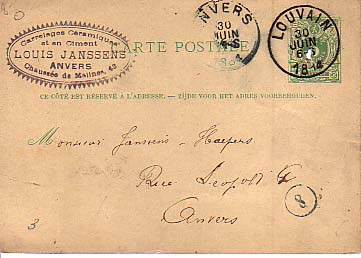 Carrelages Céramiques
et en Ciment
LOUIS JANSSENS
ANVERS
Chaussée de Malines, 43
ANVERS
30
JUIN
LOUVAIN
30
JUIN
CARTE POSTALE
CE CÔTÉ EST RÉSERVÉ À L'ADRESSE. — ZIJDE VOOR HET ADRES VOORBEHOUDEN.
Monsieur Janssens
Rue Léopold
Anvers
8
3